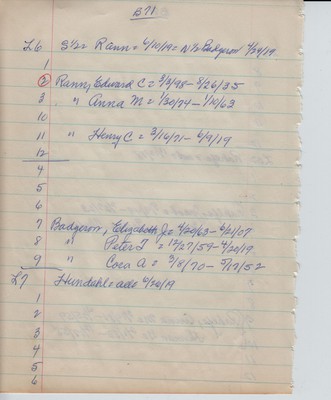 B71.
L6 S½= Rann= 6/10/19= N½ Badgerow 4/24/19.
1
2 Rann, Edward C= 3/3/98- 8/26/35
3 " Anna M= 1/30/74- 1/10/63
10
11 " Henry C= 3/16/71- 6/9/19
12
4
5
6
7 Badgerow, Elizabeth J= 4/20/63- 6/21/07
8 " Peter T = 12/27/59- 4/20/19
9 " Cora A = 3/8/70- 5/17/52
L7 Hundahl= ado 6/20/19
1
2
3
4
5
6